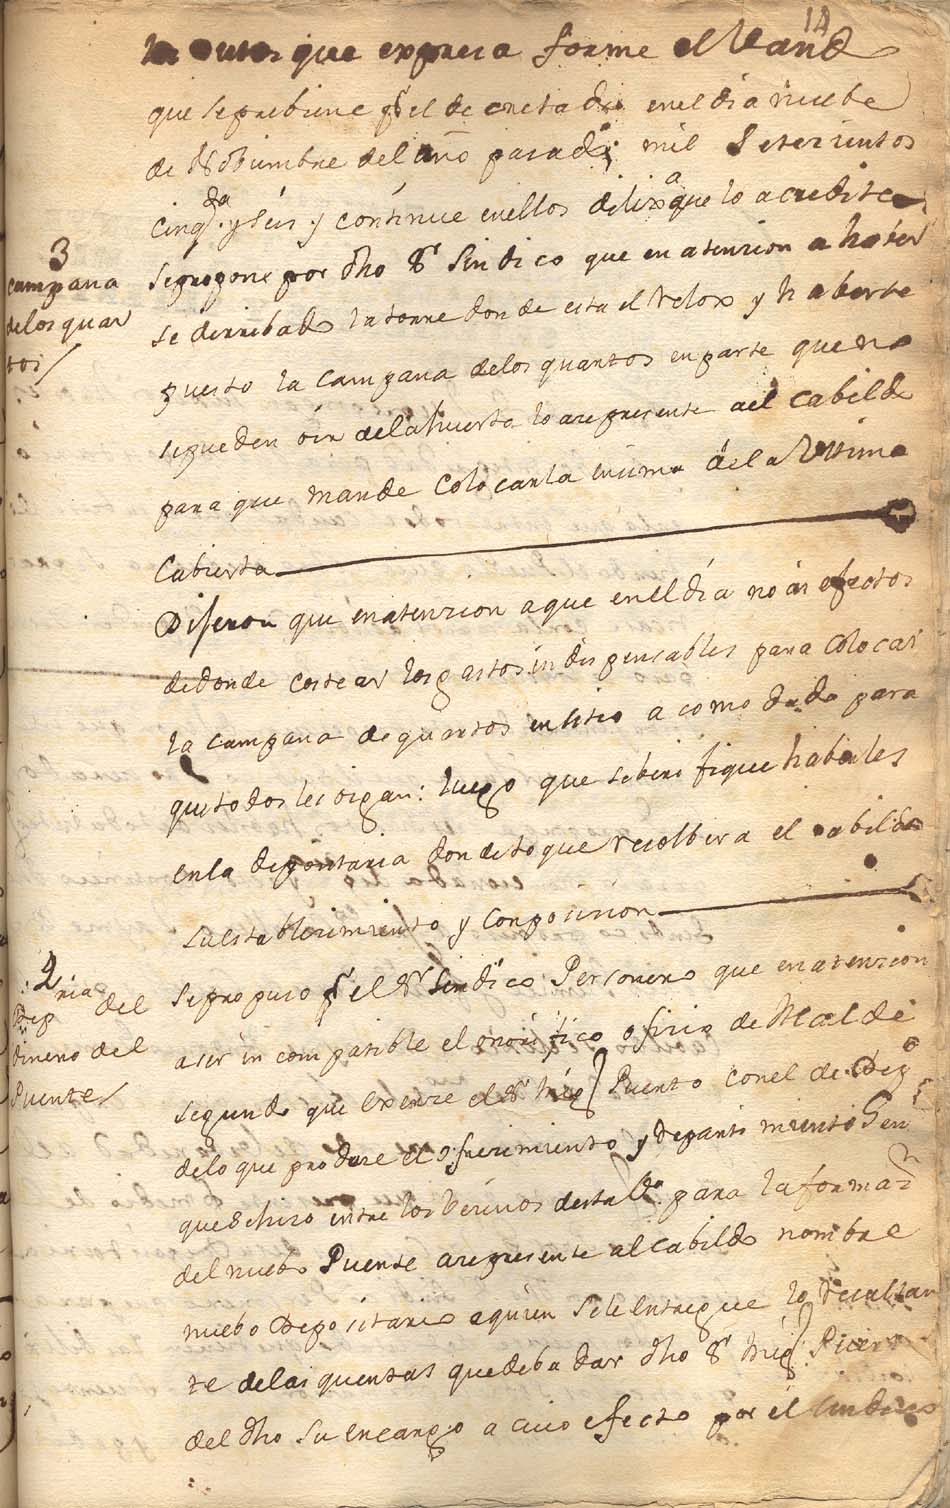 14
los autos que expresa forme el vand
que se prebiene pr el decretado en el dia nuebe
de Nobiembre del año pasado mil Setezientos
cinqta y séis y continue en ellos delixa que lo acredite
3
campana
de los quar
tos/
se propone por dho Sr Sindico que en atenzion a haver
se derribado la torre donde esta el relox y haberse
puesto la campana de los quartos en parte que no
se pueden oir de la huerta lo arepresente a el cabildo
para que mande colocarla encima de la Ultima
Cabierta
Dijeron que en atenzion a que en el día no ai efectos
de donde costear los gastos indispensables para colocar
la campana de quartos en sitio acomodado para
que todos les oigan: luego que seberifique haberles
en la depositaria donde toque resolbera el cabildo
su establezimiento y conposizion
4
Depria del
dinero del
Puente/
se propuso pr el Sr Sindico Personero que en atenzion
a ser incompatible el onorifico ofizio de Alcalde
segundo que exerze el Sr Migl Puerto con el de Depo
de lo que produze el ofrezimiento y repartimiento Gen
que se hizo entre los Vezinos desta Va para la formazn
del nuebo Puente arepresente al cabildo nombre
nuebo Depositario a quien se le entregue lo resultan
te de las quentas que deba dar dho Sr Migl Puerto
del dho su encargo a cuio efecto por el sindico